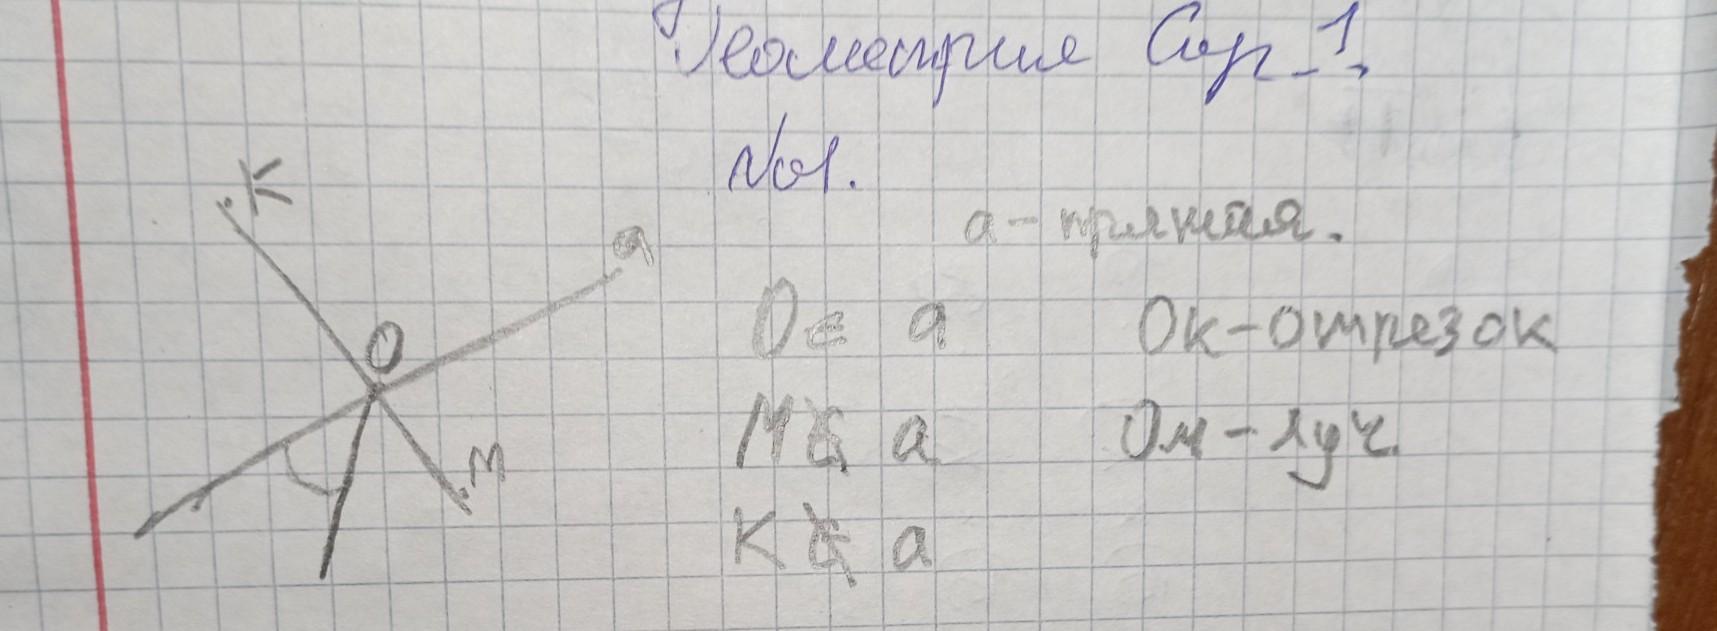 Геометрия Сир_1.
№1.
K
a
a - прямая.
O
O ∈ a OK - отрезок
M
M ∉ a OM - луч.
K ∉ a